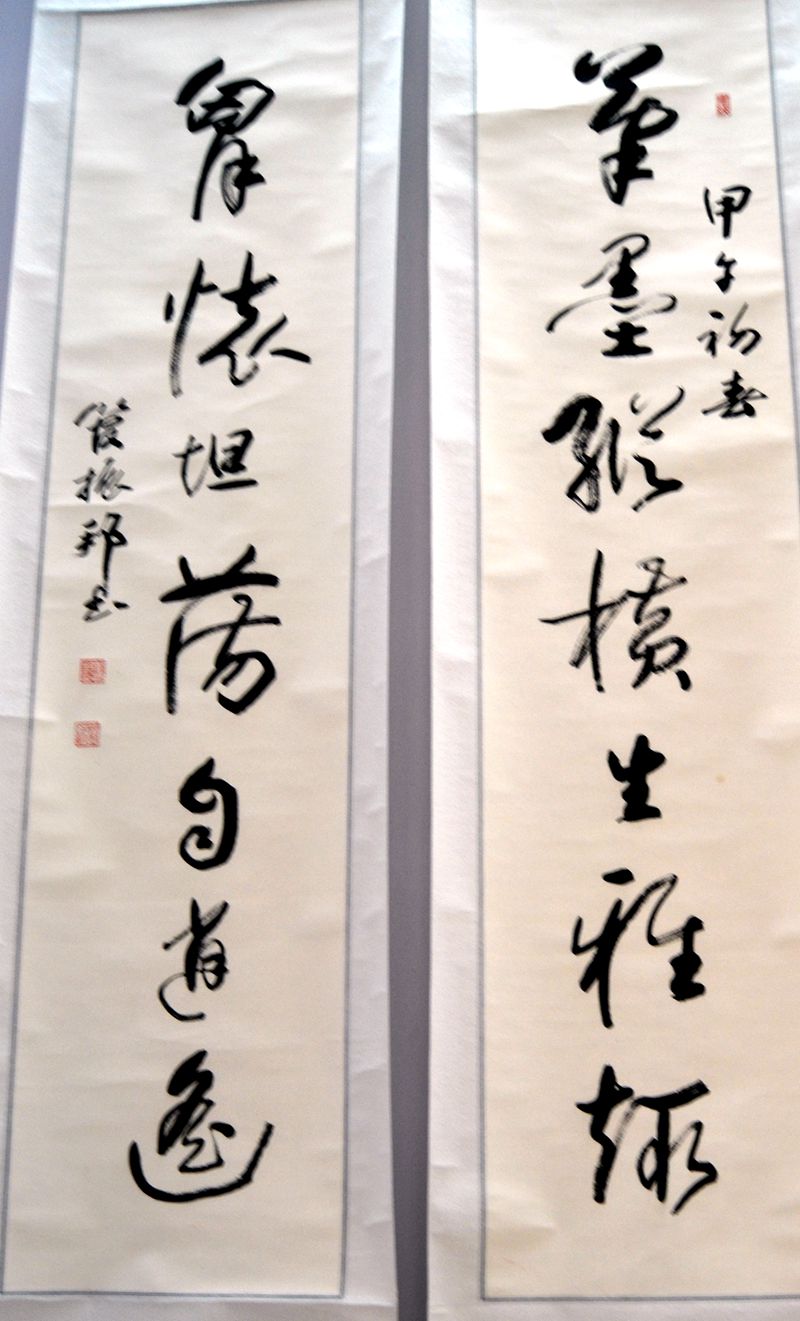 甲午初春
筆墨縱橫生雅趣
胷懷坦蕩自逍遙
管振邦書